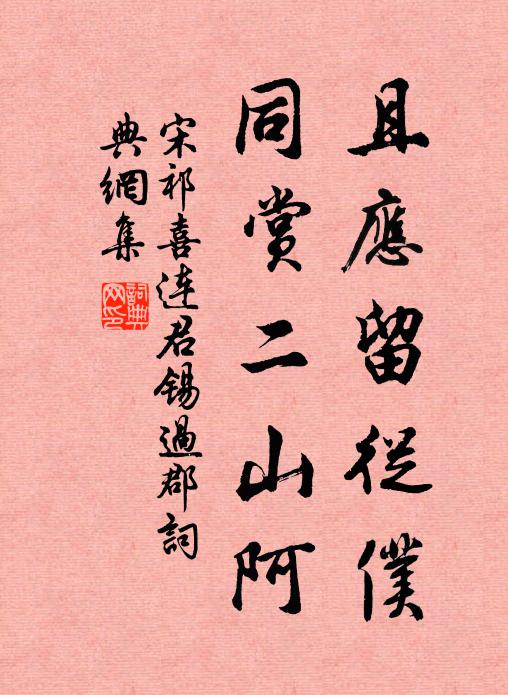 且應留從僕
同賞二山阿
宋祁喜連君錫過郡詞
典網集
詞典網印